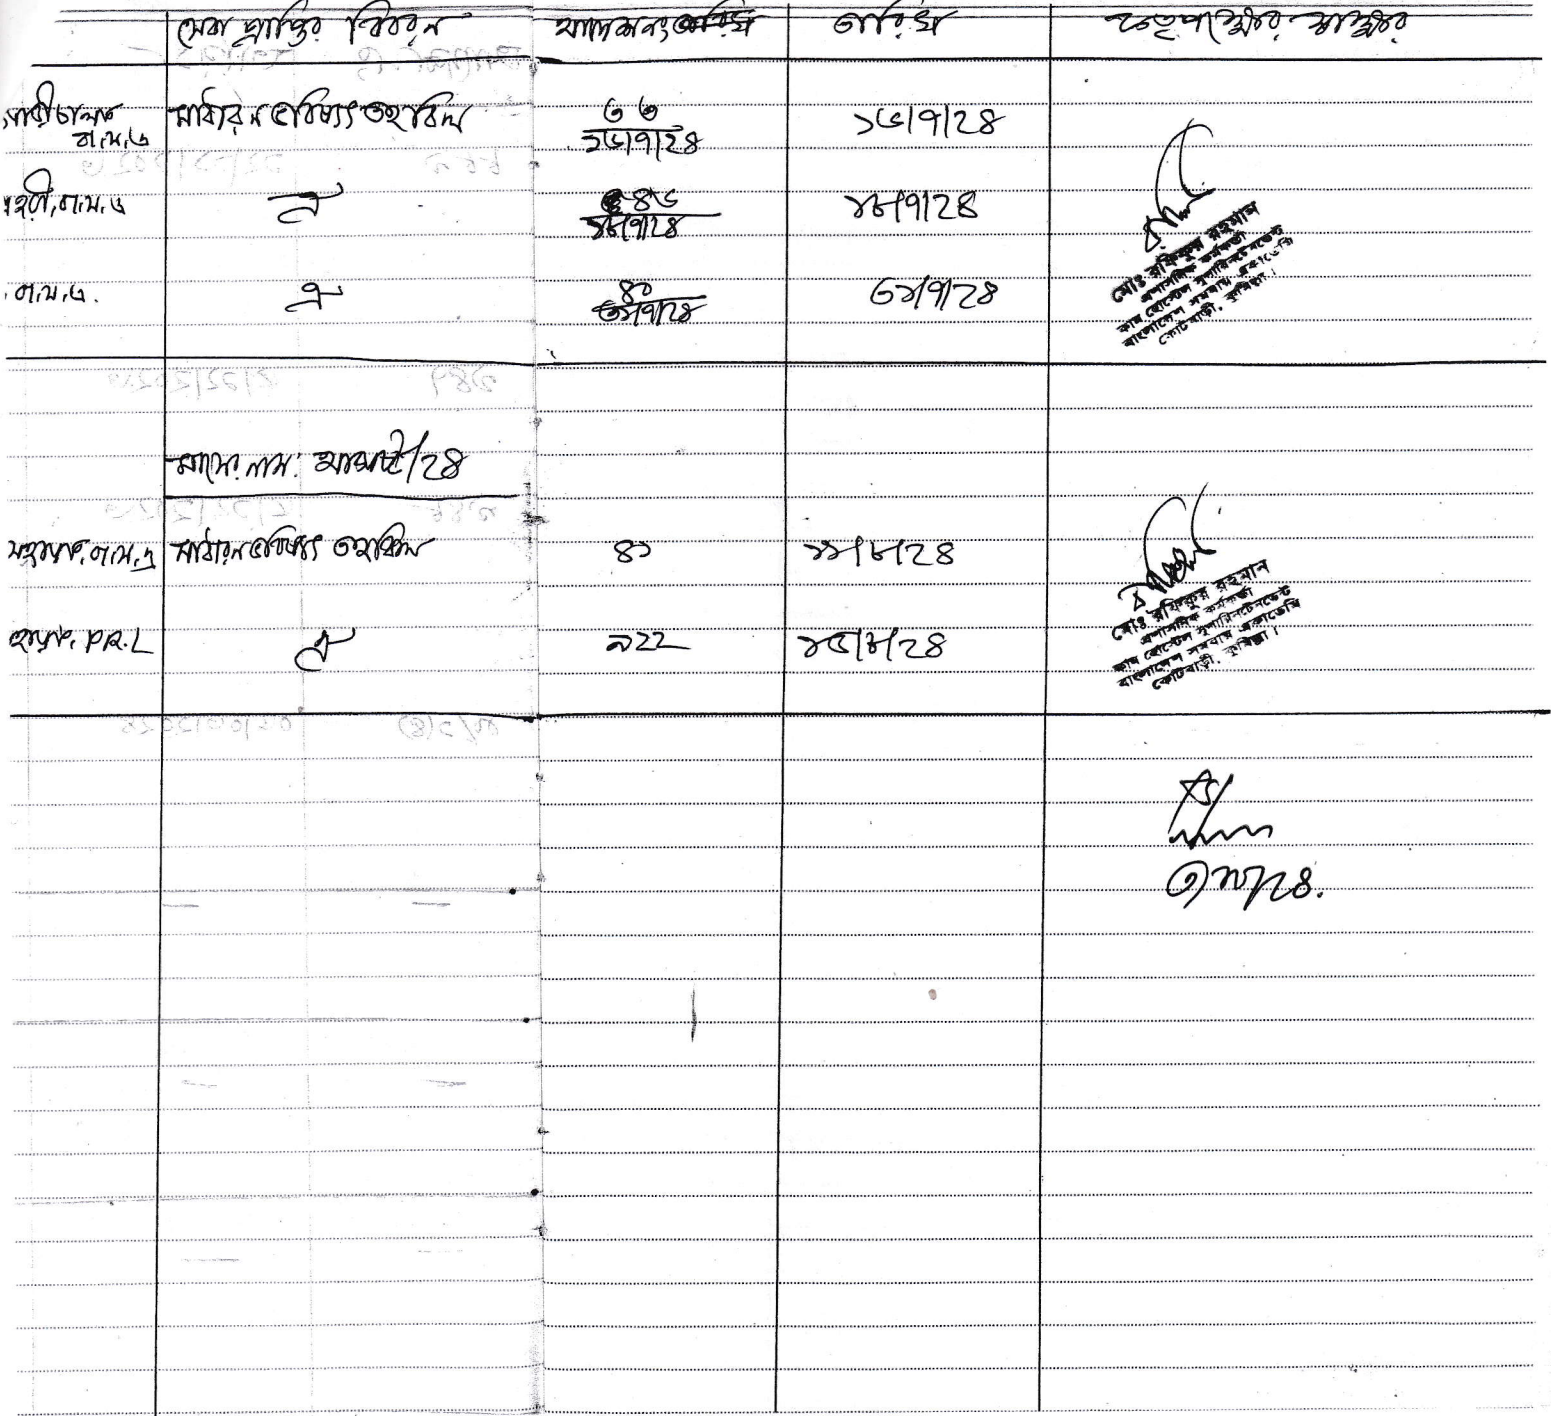 সেবা প্রাপ্তির বিবরন আদেশ নং তারিখ কতৃপক্ষের স্বাক্ষর
গাড়ীচালক সাধারন ভবিষ্যৎ তহবিল ৩৬ ১৬/৭/২৪
বা.স.এ ১৬/৭/২৪
বা.স.এ ঐ ১৮/৭/২৪
১৮/৭/২৪
মোঃ রফিকুর রহমান
প্রশাসনিক কর্মকর্তা
কাম হোস্টেল সুপারিনটেনডেন্ট
বাংলাদেশ সমবায় একাডেমি
কোটবাড়ী, কুমিল্লা।
বা.স.এ. ঐ ৪০ ৩১/৭/২৪
৩১/৭/২৪
মাসের নাম: আগষ্ট/২৪
বা.স.এ সাধারন ভবিষ্যৎ তহবিল ৪১ ১১/৮/২৪
মোঃ রফিকুর রহমান
প্রশাসনিক কর্মকর্তা
কাম হোস্টেল সুপারিনটেনডেন্ট
বাংলাদেশ সমবায় একাডেমি
কোটবাড়ী, কুমিল্লা।
P.R.L ঐ ৯২২ ১৫/৮/২৪